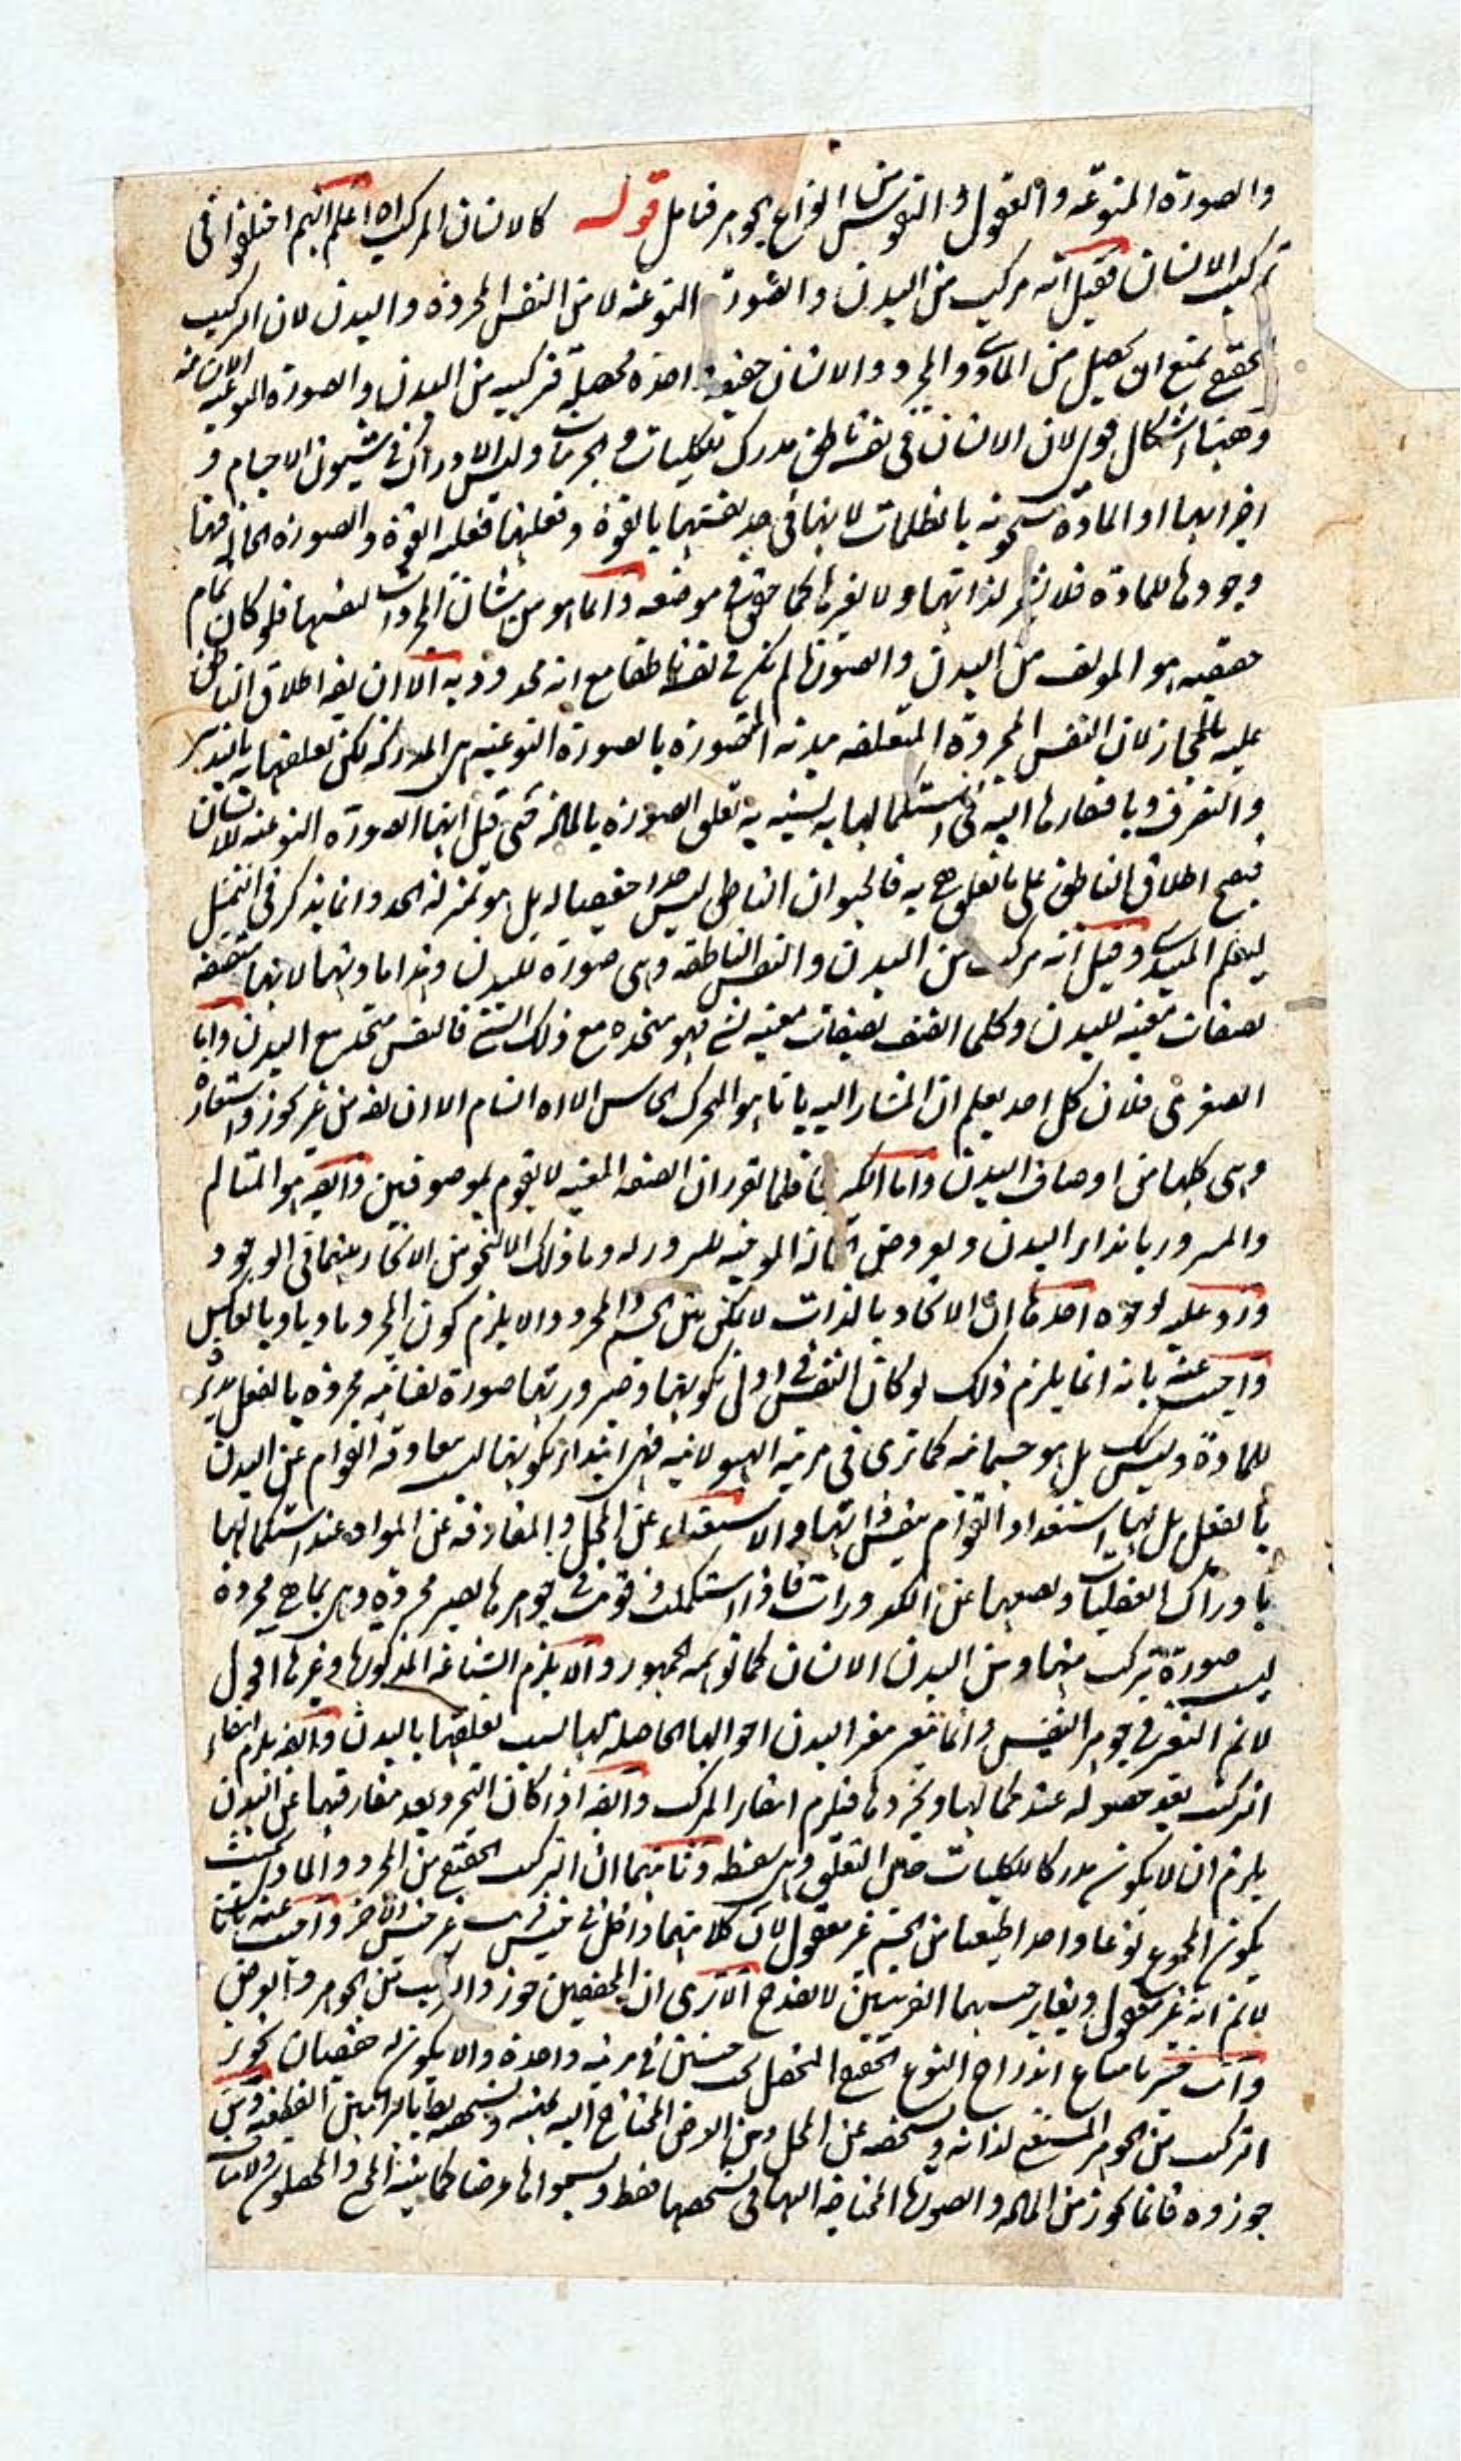 والصورة المنوعة والعقول والنفوس من انواع الجوهر فتامل قوله كالانسان المركب اه اعلم انهم اختلفوا فى
تركيب الانسان فقيل انه مركب من البدن والصورة النوعية لا من النفس المجردة والبدن لان التركيب
الحقيقي يمتنع ان يحصل من المادى والمجرد والانسان حقيقة واحدة محصلة فتركيبه من البدن والصورة النوعية الانسانية
وههنا اشكال قوى لان الانسان فى نفسه ناطق مدرك للكليات والجزئيات وليس الادراك فى شيون الاجسام و
اجزائها اذ المادة مشحونة بالظلمات لانها فى حد نفسها بالقوة وفعليتها فعلية القوة والصورة الحالة فيها
وجودها للمادة فلا لذاتها ولا لغيرها كما حقق فى موضعه وانما هو من شان المجردات لنفسها فلو كان تمام
حقيقته هو المولف من البدن والصورة لم يكن فى نفسه ناطقا مع انه محدود به الا ان يقه اطلاق الناطق
عليه بالمجاز لان النفس المجردة المتعلقة ببدنه المتصورة بالصورة النوعية هى المدركة لكن لتعلقها به بالتدبير
والتصرف وبافتقارها اليه فى استكمالها به يشبه به تعلق الصورة بالمادة حتى قيل انها الصورة النوعية للانسان
فيصح اطلاق الناطق على ما تعلق هى به فالحيوان الناطق ليس حدا حقيقيا له بل هو بمنزلة الحد وانما يذكر فى التمثيل
ليفهم المبتدى وقيل انه مركب من البدن والنفس الناطقة وهى صورة للبدن وبدامادتها لانها متصفة
بصفات معينة للبدن وكلما اتصف بصفات معينة لشئ فهو متحدة مع ذلك الشئ فالنفس متحد مع البدن واما
الصغرى فلان كل احد يعلم ان المشار اليه بانا هو المحرك الحاس الاراه النام الا ان يقه من غير تجوز واستعارة
وهى كلها من اوصاف البدن واما الكبرى فلما تقرر ان الصفة المعينة لا يقوم بموصوفين وايضه هو المتالم
والمسرور بانذاء البدن وبعروض الحالة الموجبة للسرور له وما ذلك الا لنحو من الاتحاد بينهما فى الوجود
ورد عليه لوجوه احدها ان الاتحاد بالذات لا يمكن بين الجسم والمجرد والا يلزم كون المجرد ماديا وبالعكس
واجيب عنه بانه انما يلزم ذلك لو كان النفس فى اول تكونها وصيرورتها صورة نفسانية مجردة بالفعل مدبر
للمادة وليس كك بل هو جسمانية كما ترى فى مرتبة الهيولانية فهى ابتداء تكونها ليس مفارقة القوام عن البدن
بالفعل بل لها استعداد القوام بنفس ذاتها والاستغناء عن المحل والمفارقة عن المواد عند استكمالها
بادراك العقليات وتصفيها عن الكدورات فاذا استكملت وقويت فى جوهرها يصير مجردة وهى بما هى مجردة
ليست صورة يتركب منها ومن البدن الانسان كما توهمه الجمهور والا يلزم الشناعة المذكورة وغيرها اقول
لانم التغير فى جوهر النفس وانما تتغير بتغير البدن احوالها الحاصلة لها بسبب تعلقها بالبدن وايضه يلزم انتفاء
التركيب بعد حصوله عند كمالها وتجردها فيلزم انتفاء المركب وايضه اذا كان التجرد بعد مفارقتها عن البدن
يلزم ان لا يكون مدركا للكليات حين التعلق وهى سفسطه وثانيهما ان التركيب الحقيقي من المجرد والمادى بحيث
يكون المجموع نوعا واحدا طبيعيا من الجسم غير معقول لان كلا منهما داخل فى جنس قريب غير جنس الاخر واجيب عنه بانا
لانم انه غير معقول وتغاير جنسيهما القريبين لا يقدح الا ترى ان المحققين جوزوا التركيب من الجوهر والعرض
وانت خبير بامتناع اندراج النوع الحقيقي المتحصل تحت جنسين فى مرتبة واحدة والا يكون له حقيقتان تجويز
التركيب من الجوهر المستغنى لذاته وتشخصه عن المحل ومن العرض المحتاج اليه بجنسه وتشخصه يطابالبراهين القطعية ومن
جوزوه فانما يجوز من المادة والصورة المحتاجة اليها فى تشخصها فقط ويسمونها عرضا كما بينه المحققون